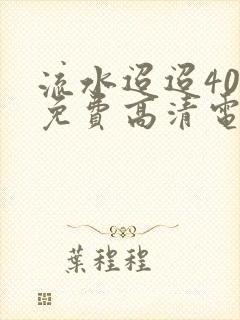 流水迢迢40
免费高清電
葉程程